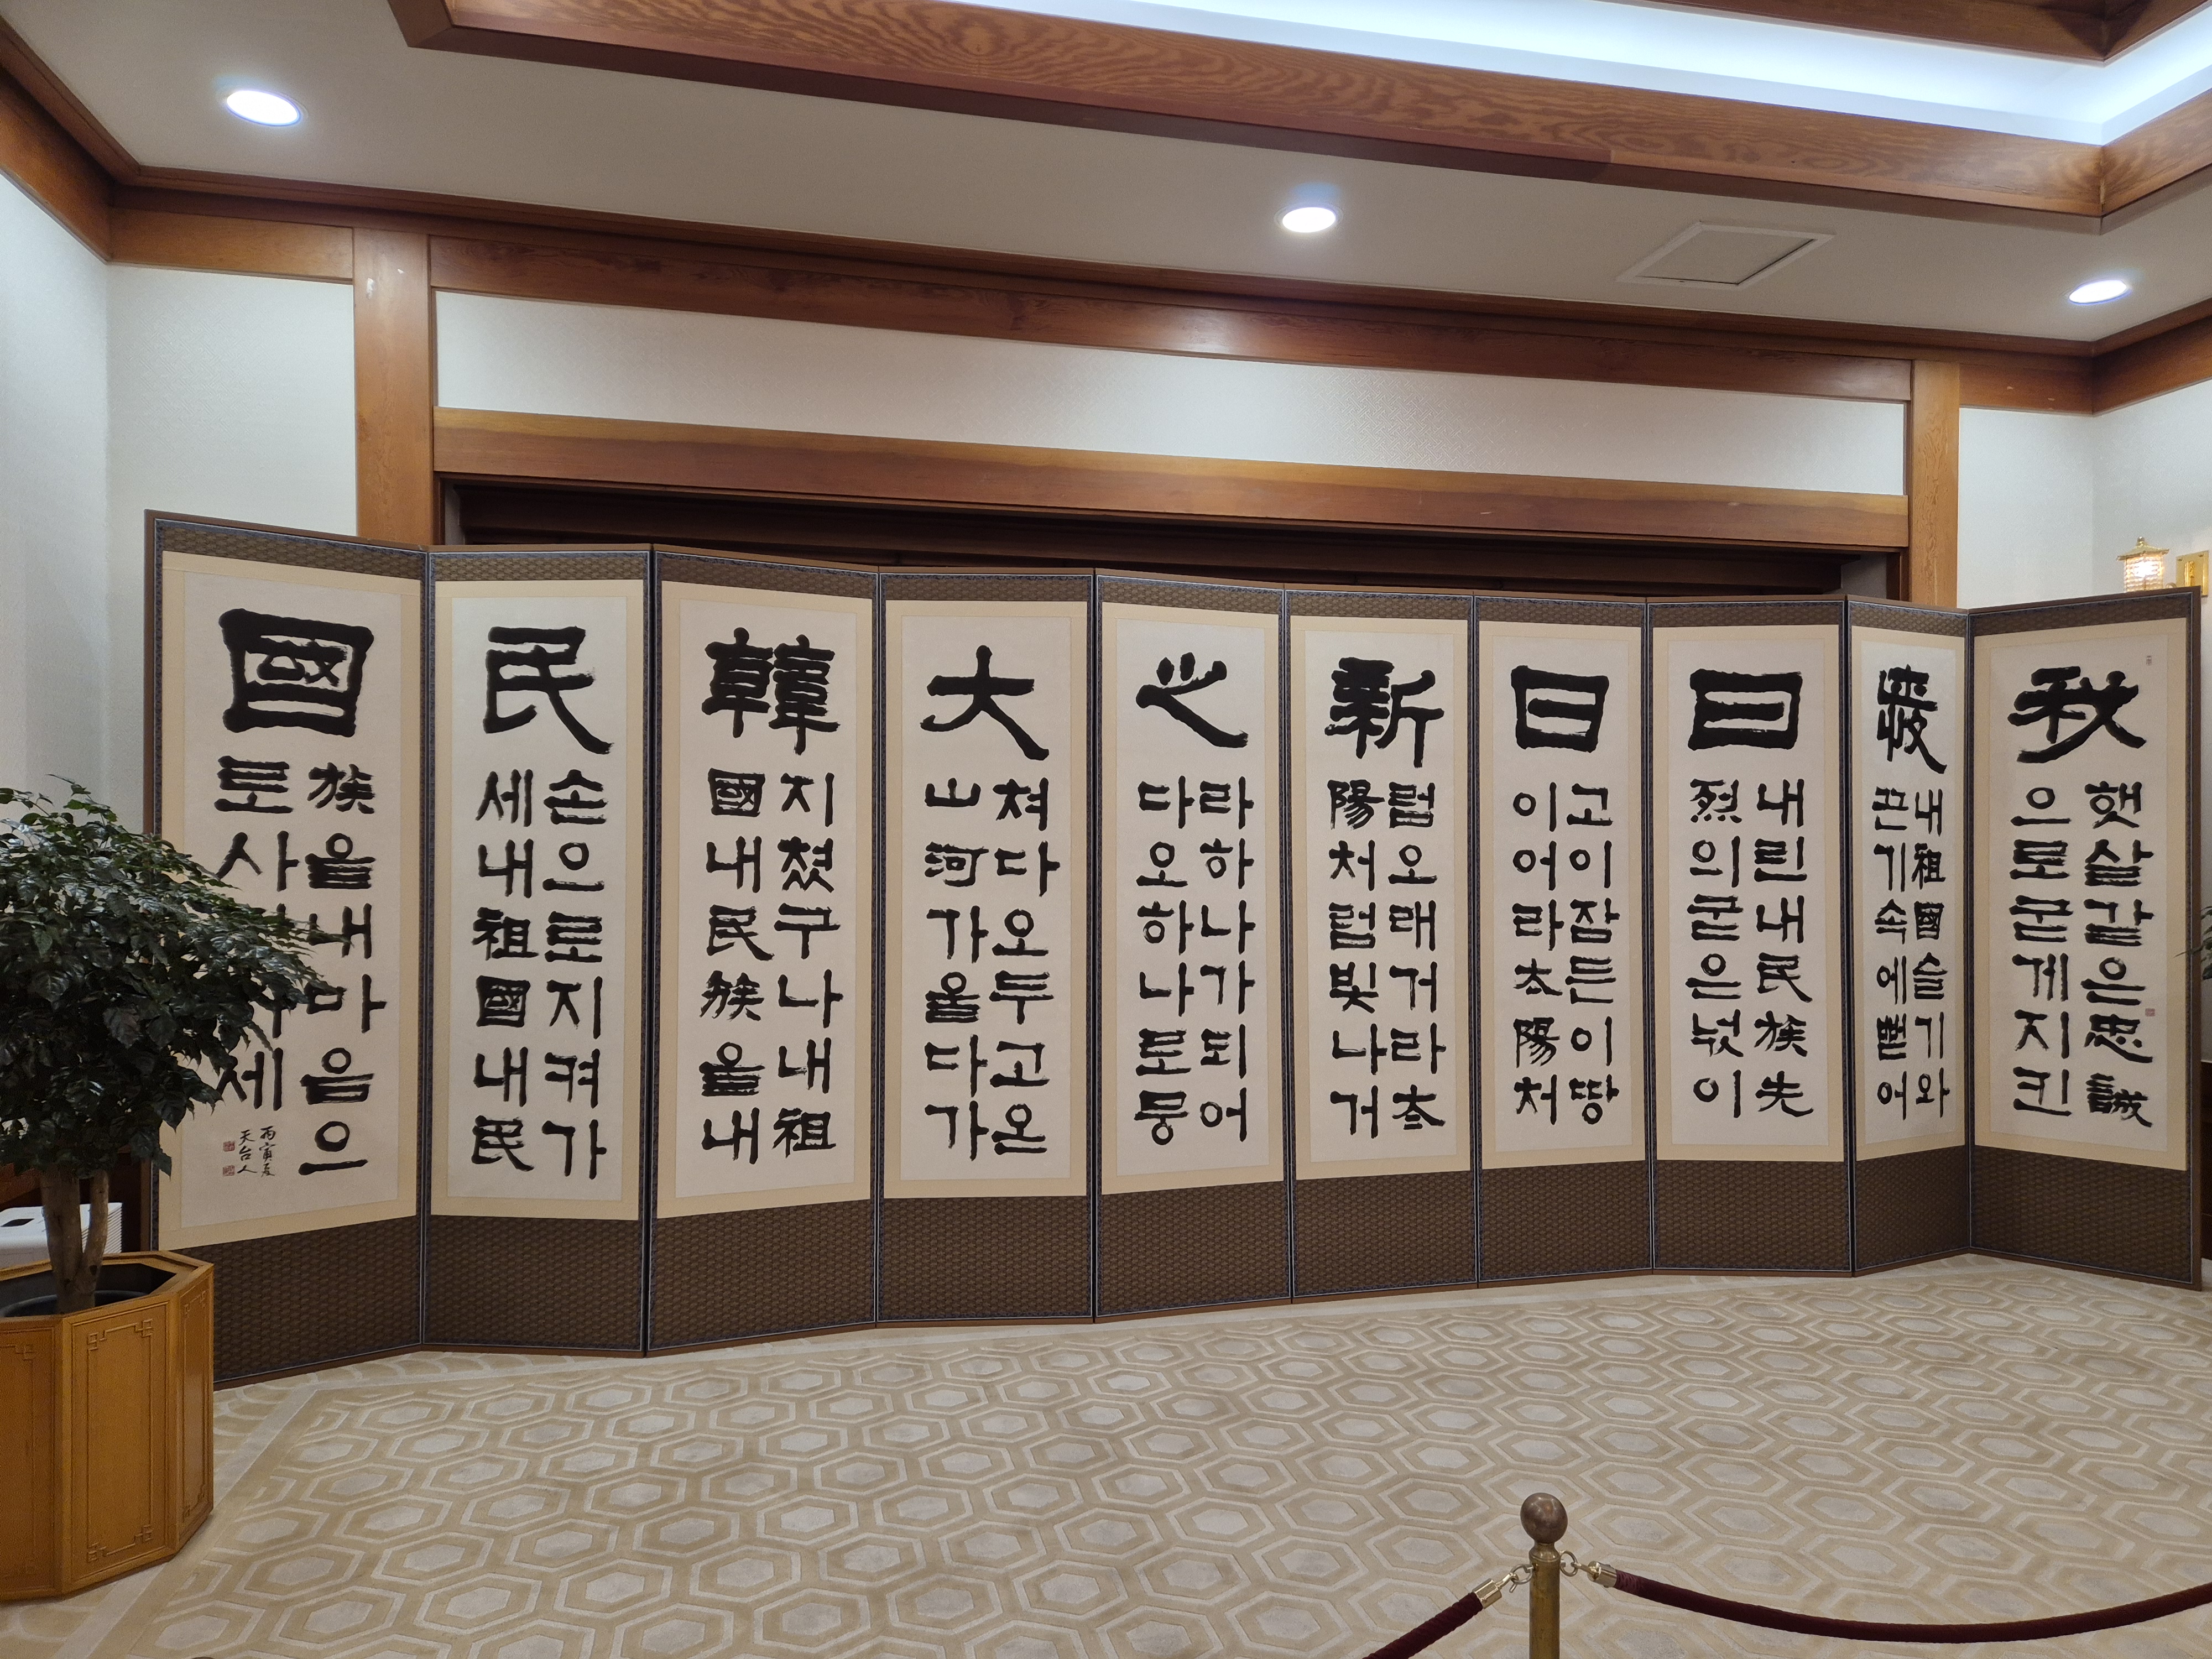 我
햇살같은忠誠
으로굳게지킨
내祖國슬기와
끈기속에뻗어
曰
내린내民族先
烈의굳은넋이
日
고이잠든이땅
이어라太陽처
新
럼오래거라太
陽처럼빛나거
之
라하나가되어
다오하나로뭉
大
쳐다오두고온
山河가울다가
韓
지쳤구나내祖
國내民族을내
民
손으로지켜가
세내祖國내民
國
族을내마음으
로사 세
丙寅夏
天台人